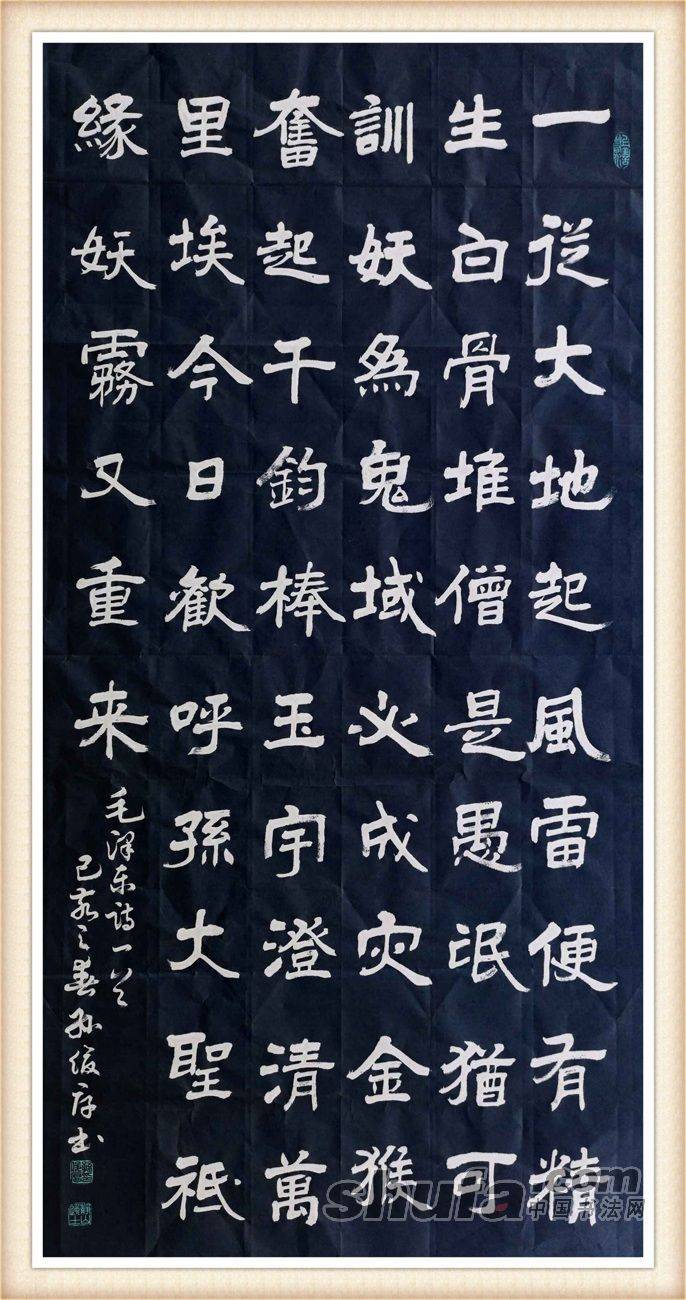 一從大地起風雷便有精
生白骨堆僧是愚氓猶可
訓妖為鬼域必成灾金猴
奮起千鈞棒玉宇澄清萬
里埃今日歡呼孫大聖祗
緣妖霧又重来
毛泽东詩一首
己亥之春孙俊书
shufa.com
中国书法网